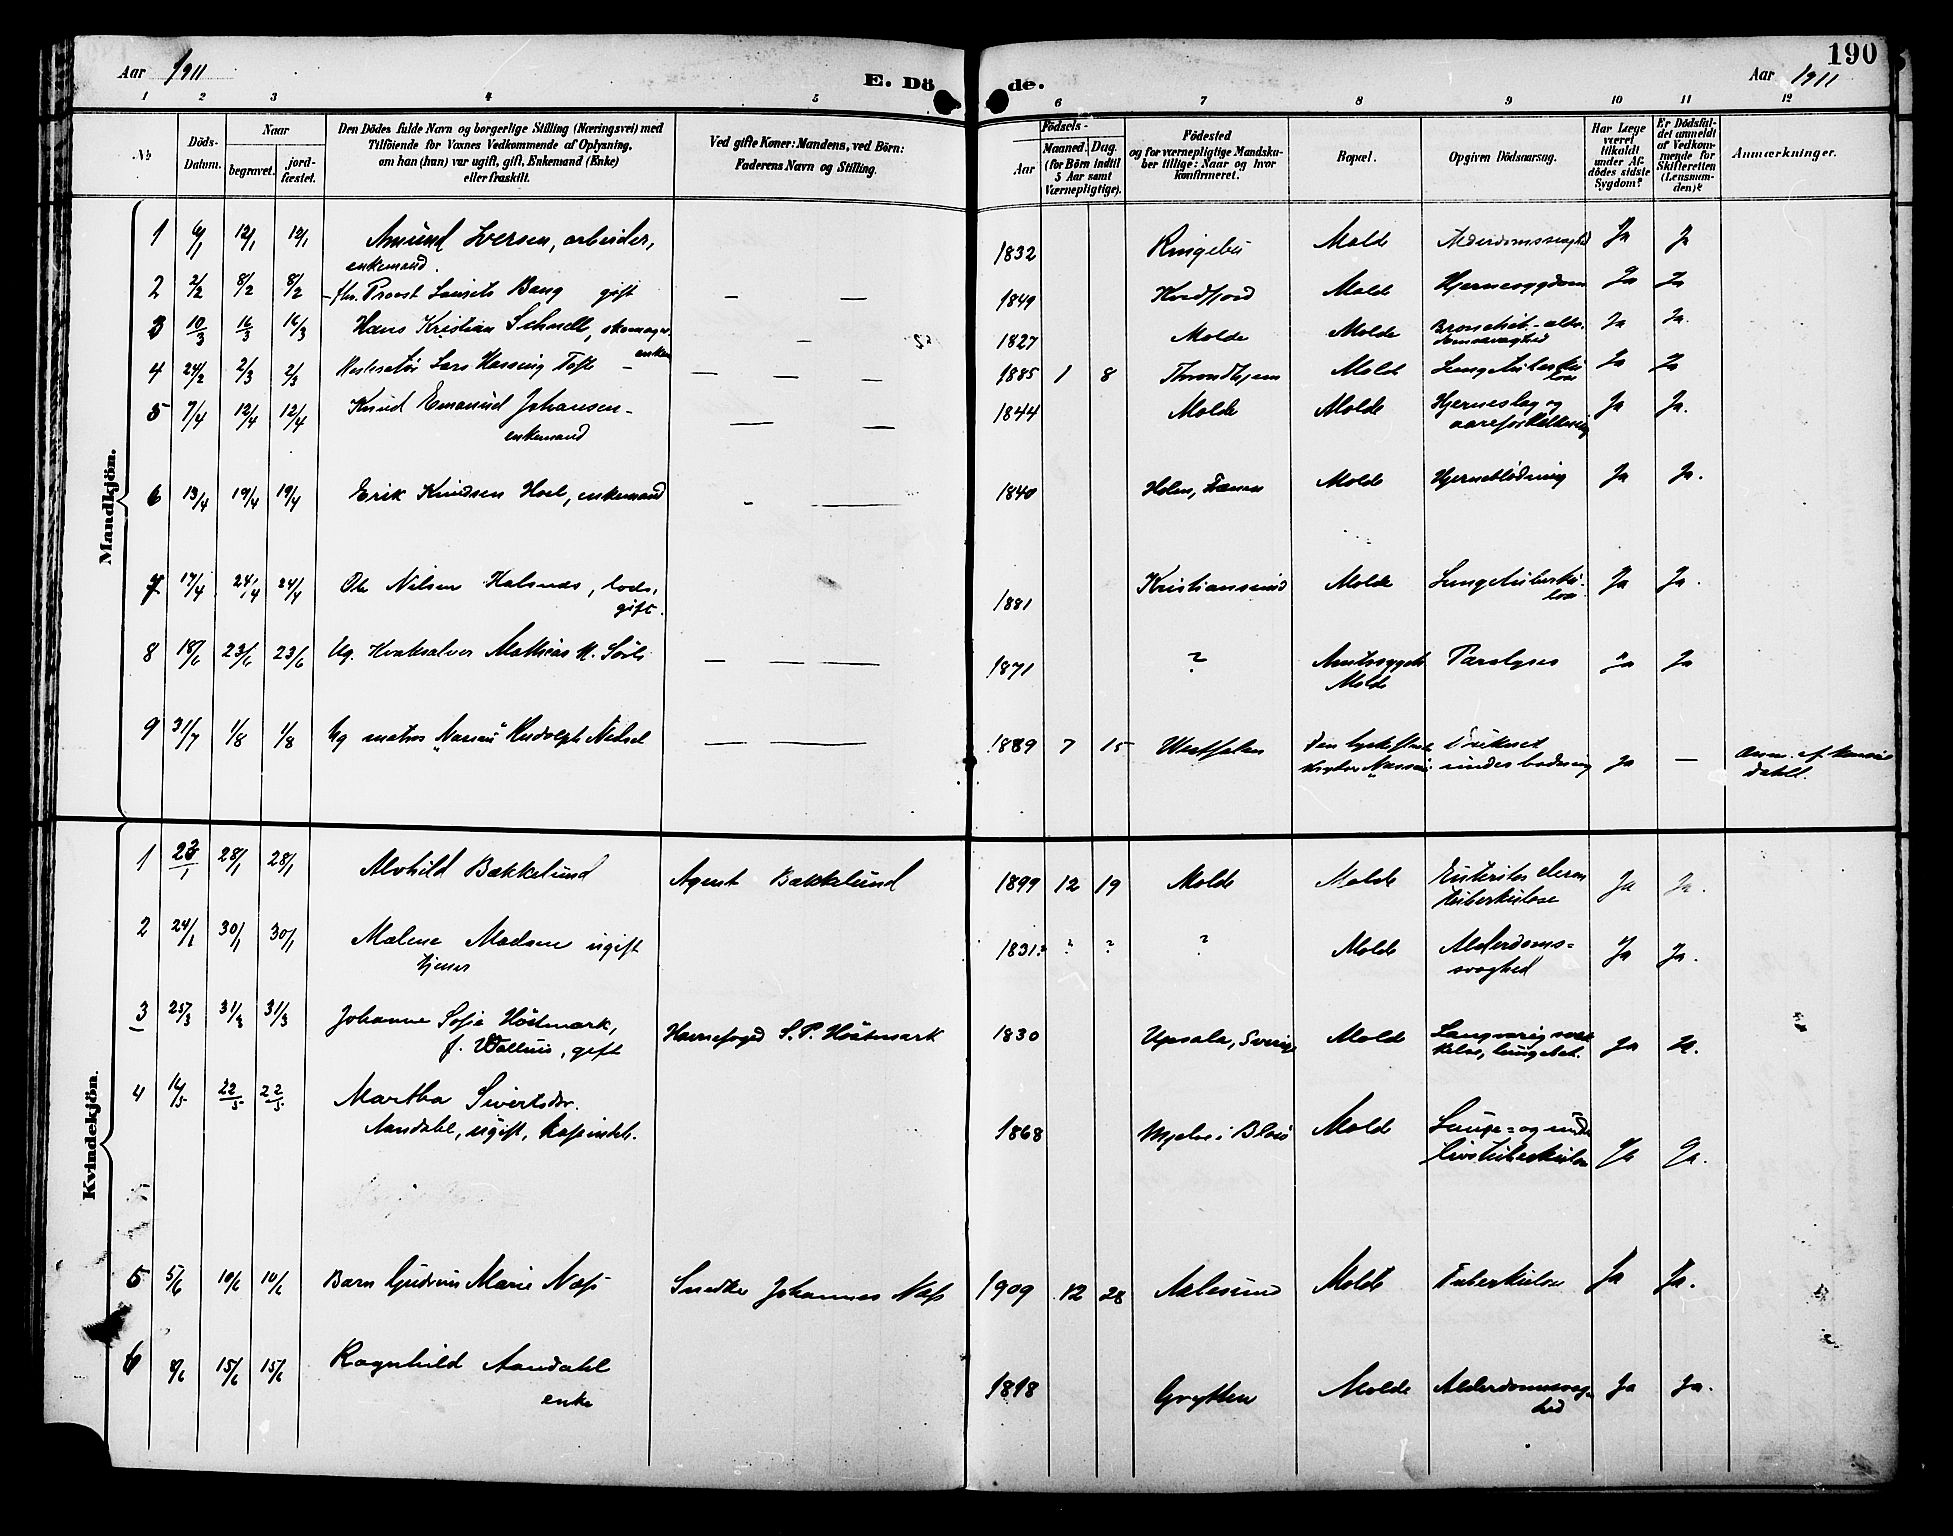 190
Aar 1911
E. Dö de.
Aar 1911
1 2 3 4 5 6 7 8 9 10 11 12
No
Döds-Datum.
Naar
begravet.
jord-fæstet.
Den Dödes fulde Navn og borgerlige Stilling (Næringsvei) med
Tilföiende for Voxnes Vedkommende af Oplysning,
om han (hun) var ugift, gift, Enkemand (Enke)
eller fraskilt.
Ved gifte Koner: Mandens, ved Börn:
Faderens Navn og Stilling.
Födsels-
Aar
Maaned. Dag.
(for Börn indtil
5 Aar samt
Værnepligtige).
Födested
og for værnepligtige Mandska-
ber tillige: Naar og hvor
konfirmeret.
Bopæl.
Opgiven Dödsaarsag.
Har Læge
været
tilkaldt
under Af-
dödes sidste
Sygdom?
Er Dödsfal-
det anmeldt
af Vedkom-
mende for
Skifteretten
(Lensman-
den)?
Anmærkninger.
Mandkjön.
1 6/1 12/1 12/1 Amund Iversen, arbeider, 1832 Ringebu Molde Alderdomssvaghed Ja Ja
enkemand.
2 2/2 8/2 8/2 fhv. Provst Laurits Bang gift — — 1849 Kvedfjord Molde Hjernesygdom Ja Ja
3 10/3 16/3 16/3 Hans Kristian Schnell, skomager — 1827 Molde Molde Ja Ja.
4 24/2 2/3 2/3 Lars Tofte — — — — 1885 1 8 Throndhjem Molde Lungetuberku-
lose Ja Ja
5 7/4 12/4 12/4 Knud Emanuel Johansen — — — 1844 Molde Molde Hjerneslag og
enkemand aareforkalkning Ja Ja.
6 13/4 19/4 19/4 Erik Knudsen Hoel, enkemand — — 1840 Molde Hjerneblödning Ja Ja.
7 17/4 24/4 24/4 Ole Nilsen Halsnæs, lods, 1881 Kristianssund Molde Lungetuberku-
gift. lose Ja Ja.
8 18/6 23/6 23/6 Ug. Mathias — — — 1871 ? Amtssygeh.
Molde Paralyses Ja Ja
9 31/7 1/8 1/8 Ug matros "Nassau" Rudolph — — 1889 7 15 Westfalen
"Nassau" Druknet
under badning Ja — Anm. af
Kvindekjön.
1 23/1 28/1 28/1 Alvhild Bækkelund Agent Bækkelund 1899 12 19 Molde Molde Enterites
tuberkulose Ja Ja.
2 24/1 30/1 30/1 Malene Madsen ugift 1831? ? ? ? Molde Alderdoms-
svaghed Ja Ja.
3 25/3 31/3 31/3 Johanne Sofie Höstmark, Havnefoged S. P. Höstmark 1830 Upsala, Sverige Molde Langvarig
f. Wallins, gift Ja
4 14/5 22/5 22/5 Martha Sivertsdtr. 1868 Molde Lunge- og
Aandahl, ugift, Ja Ja.
5 5/6 10/6 10/6 Barn Gudrun Marie Næss Snedker Johannes Næss 1909 12 28 Aalesund Molde Tuberkulose Ja Ja.
6 9/6 15/6 15/6 Ragnhild Aandahl 1818 Grytten Molde Alderdomssvag-
enke hed Ja Ja.